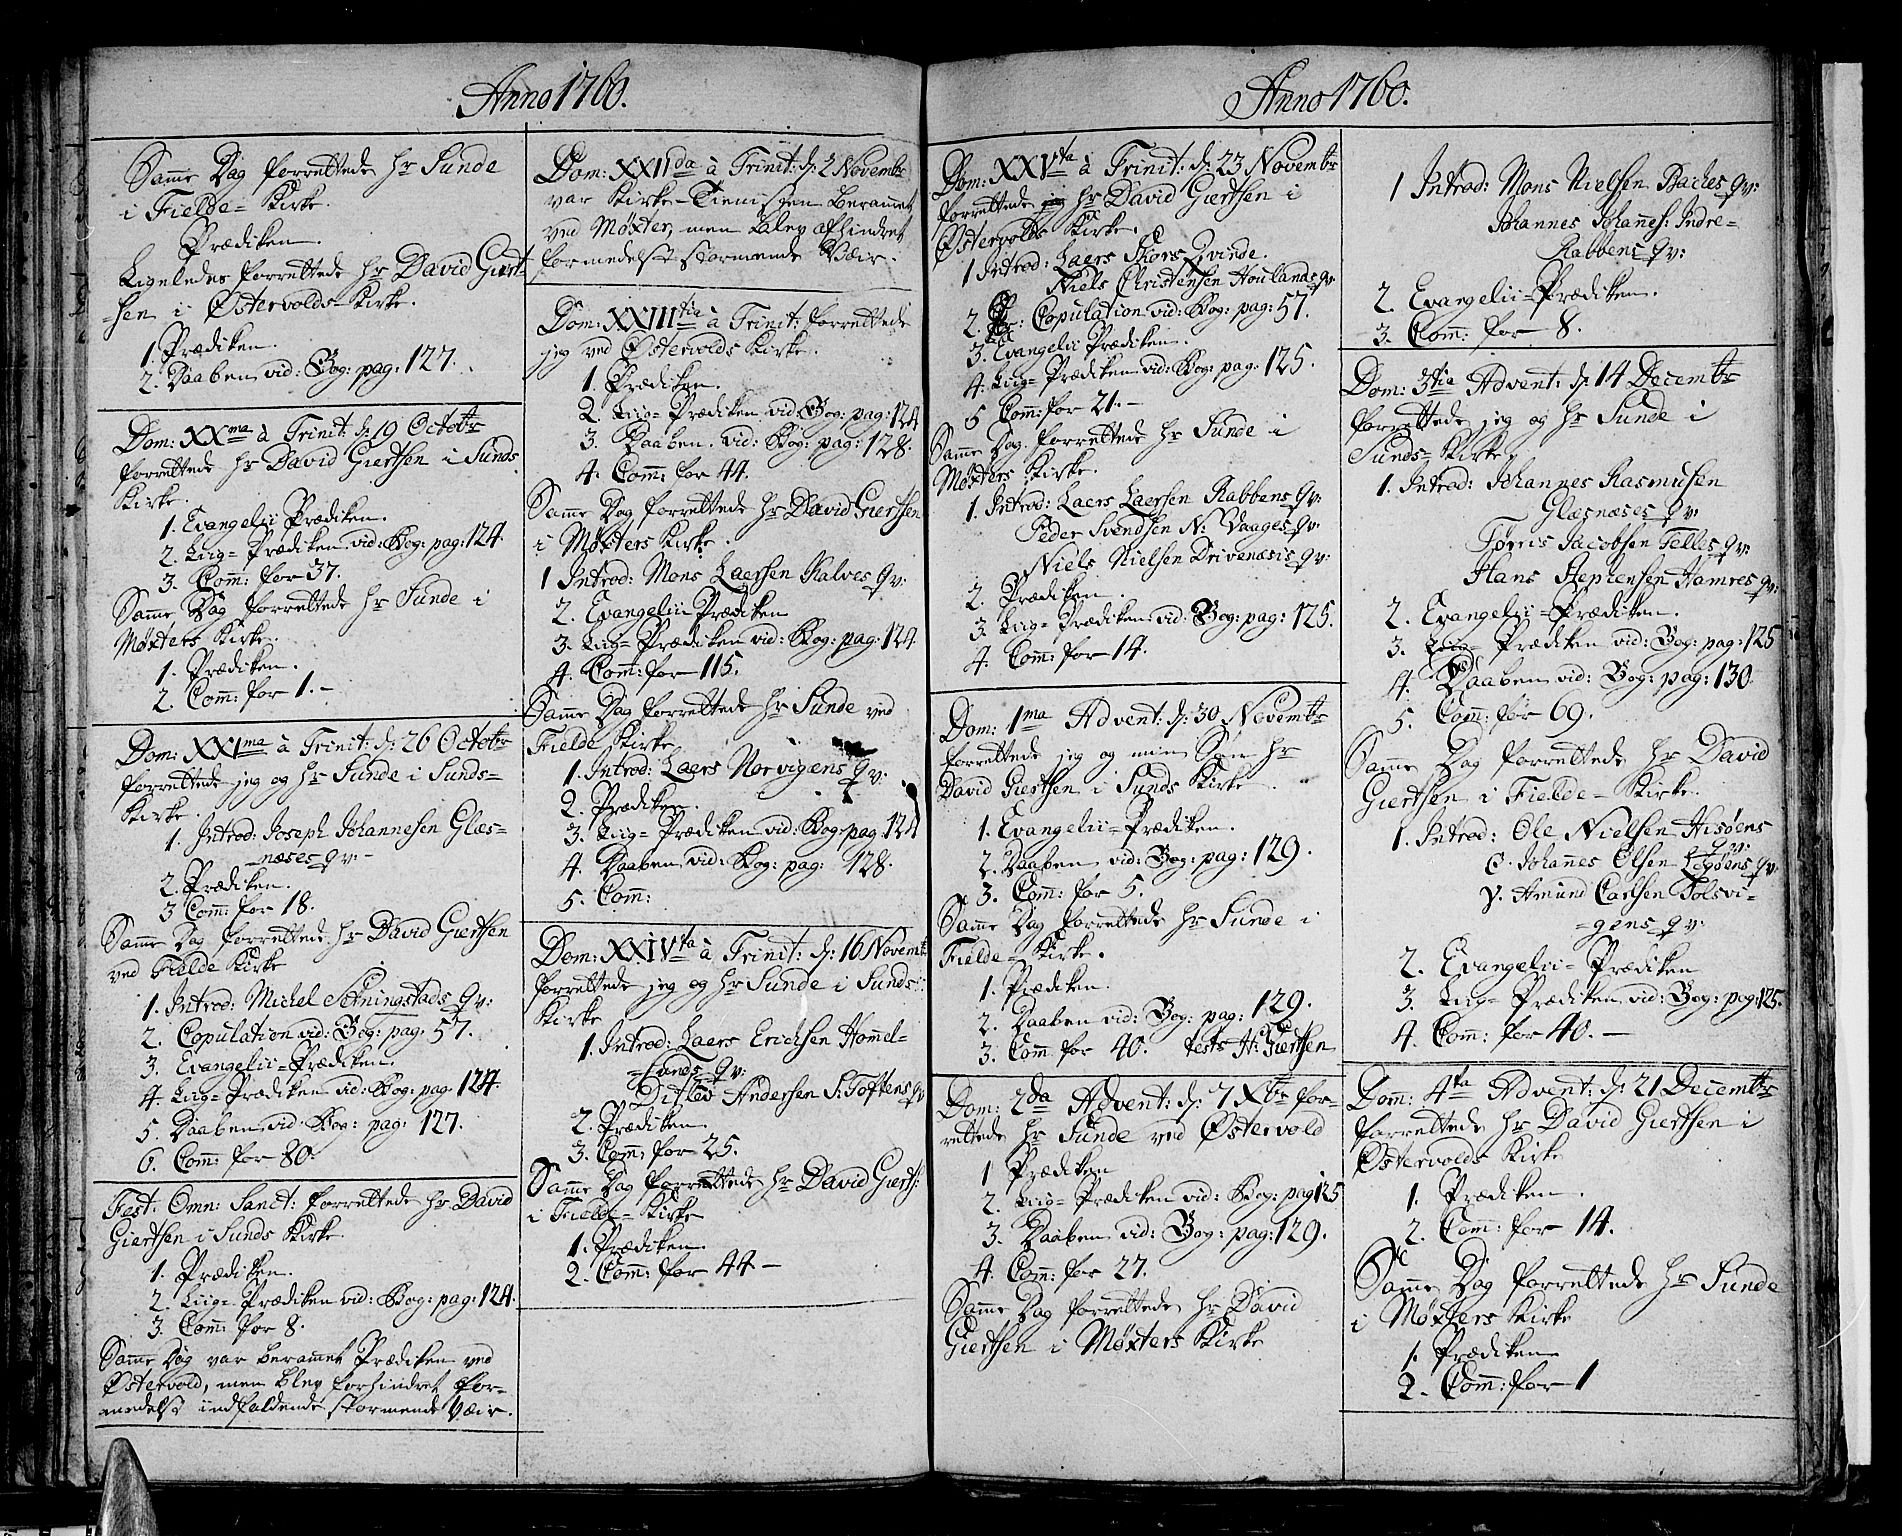 Anno 1760.
Samme Dag forrettede Hr Sunde
i Fielde=Kirke.
Prædiken.
Ligeledes forrettede Hr David Giert-
=sen i Østervolds=Kirke.
1. Prædiken.
2. Daaben vid: Bog: pag: 127.
Dom: XXma à Trinit: d: 19 Octobr
forrettede Hr David Giertsen i Sunds
Kirke.
1. Evangelii Prædiken.
2. Liig=Prædiken vid: Bog: pag: 124
3. Com̄: for 37.
Samme Dag forrettede Hr Sunde i
Møxters Kirke.
1. Prædiken.
2. Com̄: for 1.-
Dom: XXIma à Trinit: d: 26 Octobr
forrettede jeg og Hr Sunde i Sunds=
Kirke.
1. Introd: Joseph Johannesen Glæs=
næses qv:-
2. Prædiken.
3 Com̄: for 18.
Samme Dag forrettede Hr David Giertsen
ved Fielde Kirke
1. Introd: Michel qv:
2. Copulation vid: Bog: pag: 57.
3. Evangelii=Prædiken.
4. Liig=Prædiken vid: Bog: pag 124.
5. Daaben vid: Bog: pag: 127.
6. Com̄: for 80.
Fest: Omn: Sanct: forrettede Hr David
Giertsen i Sunds Kirke
1. Prædiken.
2. Liig=Prædiken vid: Bog: pag: 124.
3. Com̄: for 8.
Samme Dag var berammet Prædiken ved
Østervold, men blev forhindret for-
medelst indfaldende stormende Væir.
Dom: XXIIda à Trinit: d: 2 Novembr
var Kirke=Tienisten berammet
ved Møxter, men blev afhindret
formedelst stormende Væir.
Dom: XXIIItia à Trinit: forrettede
jeg ved Østervolds Kirke.
1. Prædiken.
2. Liig=Prædiken vid: Bog: pag: 124
3. Daaben. vid: Bog: pag: 128.
4. Com̄: for 44.
Samme Dag forrettede Hr David Giertsen
i Møxters Kirke.
1 Introd: Mons Laersen Kalves qv:
2. Evangelii Prædiken
3. Liig=Prædiken vid: Bog: pag: 124
4. Com̄: for 115.
Samme Dag forrettede Hr Sunde ved
Fielde Kirke
1. Introd: Laers Norvigens qv:
2. Prædiken.
3. Liig=Prædiken vid: Bog: pag 124
4. Daaben vid: Bog: pag: 128.
5. Com̄:
Dom: XXIVta à Trinit: d: 16 Novemb
forrettede jeg og Hr Sunde i Sunds
Kirke
1. Introd: Laers Erichsen Hommel=
=Lands qv:
Ditlev Andersen S: Toftens qv
2. Prædiken
3. Com̄: for 25.
Samme Dag forrettede Hr David Gierts:
i Fielde=Kirke
1. Prædiken.
2. Com̄: for 44-
Anno 1760.
Dom: XXVta à Trinit: d: 23 Novembr
forrettede Hr David Giertsen i
Østervolds Kirke.
1 Introd: Laers Skors Qvinde.
Niels Christensen Houlands qv
2. Copulation vid: Bog: pag: 57.
3. Evangelii Prædiken.
4. Liig=Prædiken vid: Bog: pag: 125.
5 Com̄: for 21.-
Samme Dag forrettede Hr Sunde i
Møxters Kirke.
1. Introd: Laers Laersen Rabbens qv:
Peder Svendsen N: Vaages qv:
Niels Nielsen Drivenæsis qv:
2. Prædiken.
3. Liig=Prædiken vid: Bog: pag: 125.
4. Com̄: for 14.
Dom: 1ma Advent: d: 30 Novembr
forrettede jeg og min Søn Hr
David Giertsen i Sunds Kirke
1. Evangelii=Prædiken.
2. Daaben vid: Bog: pag: 129.
3. Com̄: for 5.
Samme Dag forrettede Hr Sunde i
Fielde=Kirke.
1. Prædiken.
2. Daaben vid: Bog: pag: 129.
3. Com̄ for 40. test: H: Giertsen
Dom: 2da Advent: d: 7 Xbr for-
rettede Hr Sunde ved Østervold
1 Prædiken
2. Liig=Prædiken vid: Bog: pag 125
3. Daaben vid: Bog: pag: 129.
4. Com̄: for 27.
Samme Dag forrettede Hr David
Giertsen i Møxters Kirke
1 Introd: Mons Nielsen Baches qv:
Johannes Johannes: Indre=
Rabbens qv:
2. Evangelii=Prædiken.
3. Com̄: for 8.
Dom: 3tia Advent: d: 14 Decembr
forrettede jeg og Hr Sunde i
Sunds=Kirke
1. Introd: Johannes Rasmusen
Glæsnæses qv:
Tøris Jacobsen Telles qv:
Hans Stephensen Hamres qv:
2. Evangelii=Prædiken.
3. Liig=Prædiken vid: Bog: pag: 125
4. Daaben vid: Bog: pag: 130.
5. Com̄: før 69.
Samme Dag forrettede Hr David
Giertsen i Fielde=Kirke.
1. Introd: Ole Nielsen Hisøens
qv:
Johannes Olsen Legøens qv:
Amund Carlsen Solsvi=
=gens qv:
2. Evangelii=Prædiken
3. Liig=Prædiken vid: Bog: pag: 125.
4. Com̄: for 40.-
Dom: 4ta Advent: d: 21 Decembr
forrettede Hr David Giertsen i
Østervolds Kirke
1. Prædiken.
2. Com̄: for 14.
Samme Dag forrettede Hr Sunde
i Møxters Kirke
1. Prædiken
2. Com̄: for 1